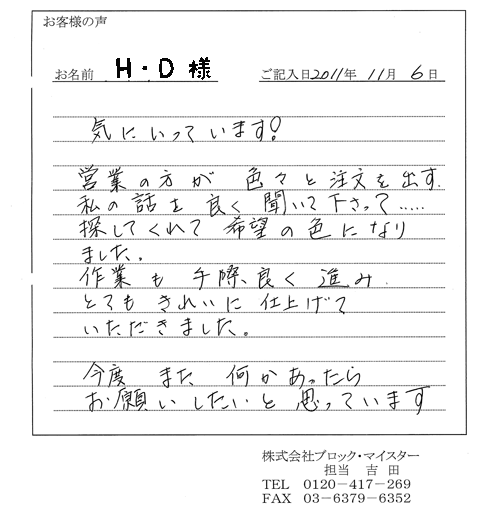 お客様の声
お名前 H・D 様 ご記入日 2011年 11月 6日
気にいっています!
営業の方が 色々と注文を出す
私の話を良く聞いて下さって.....
探してくれて 希望の色になり
ました。
作業も 手際良く 進み
とても きれいに 仕上げて
いただきました。
今度 また 何かあったら
お願いしたいと 思っています
株式会社ブロック・マイスター
担当 吉田
TEL 0120-417-269
FAX 03-6379-6352